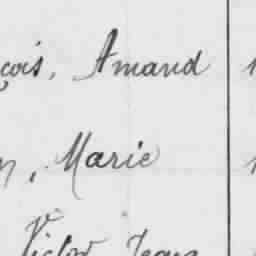 çois, Amand
n, Marie
Victor Jean